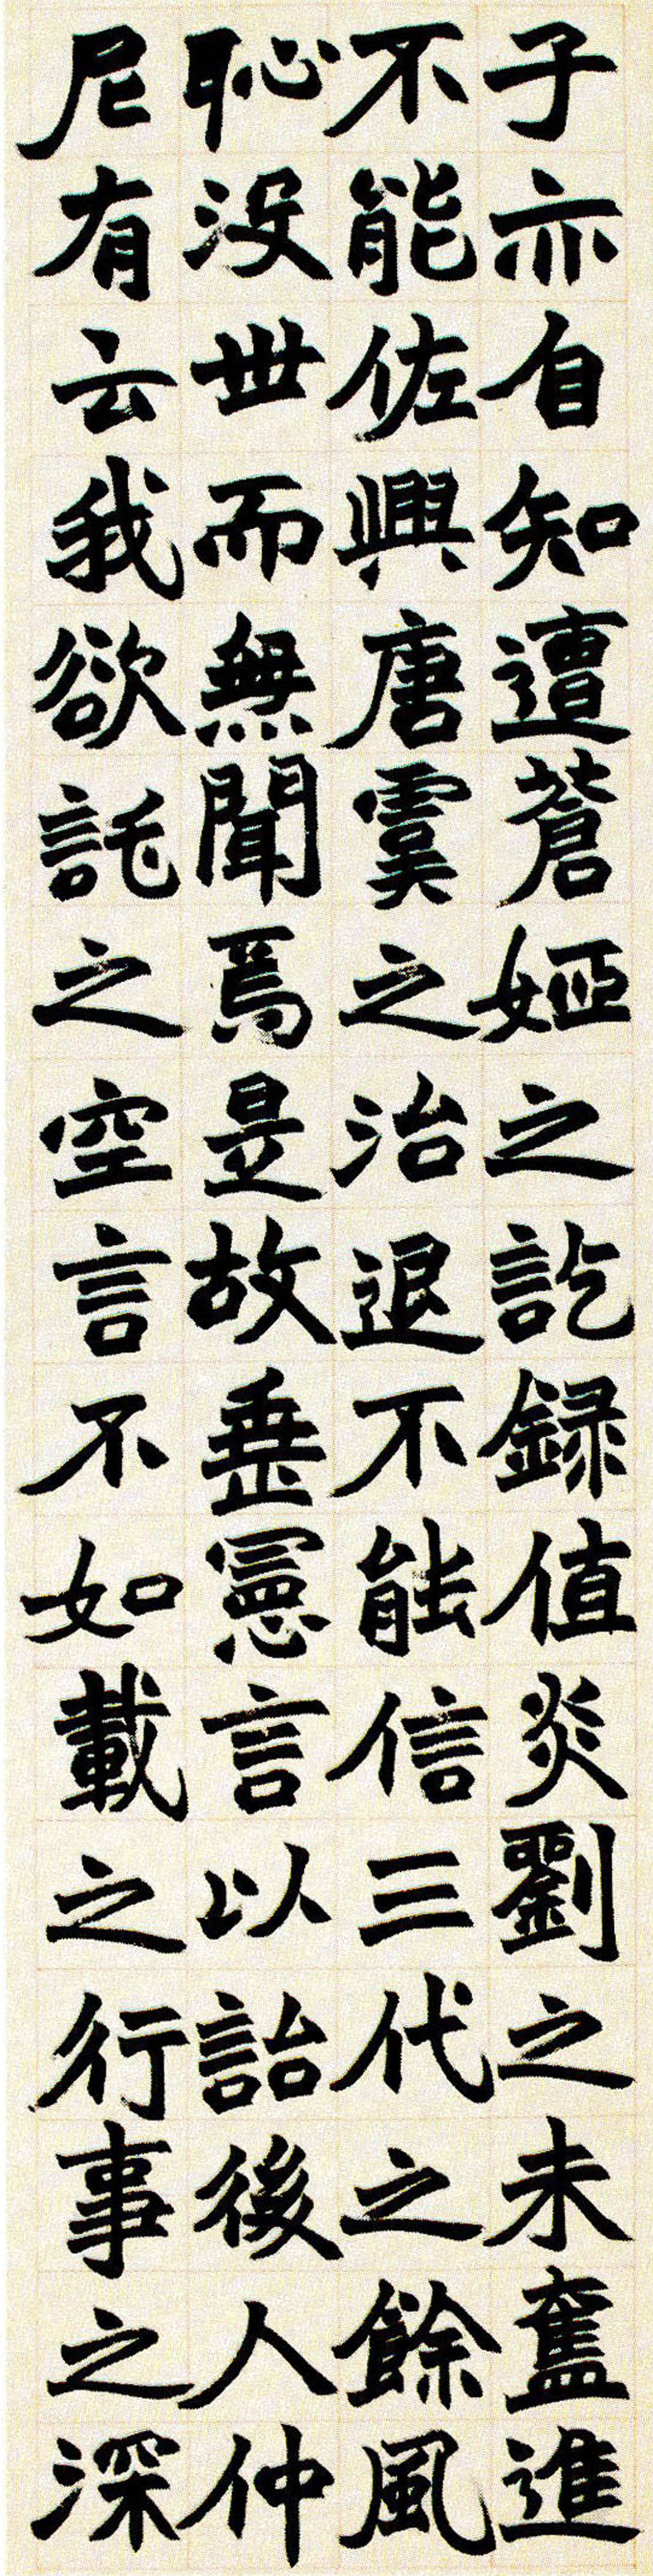 子亦自知遭蒼姬之訖録值炎劉之未奮進
不能佐興唐虞之治退不能信三代之餘風
恥没世而無聞焉是故垂憲言以詒後人仲
尼有云我欲託之空言不如載之行事之深